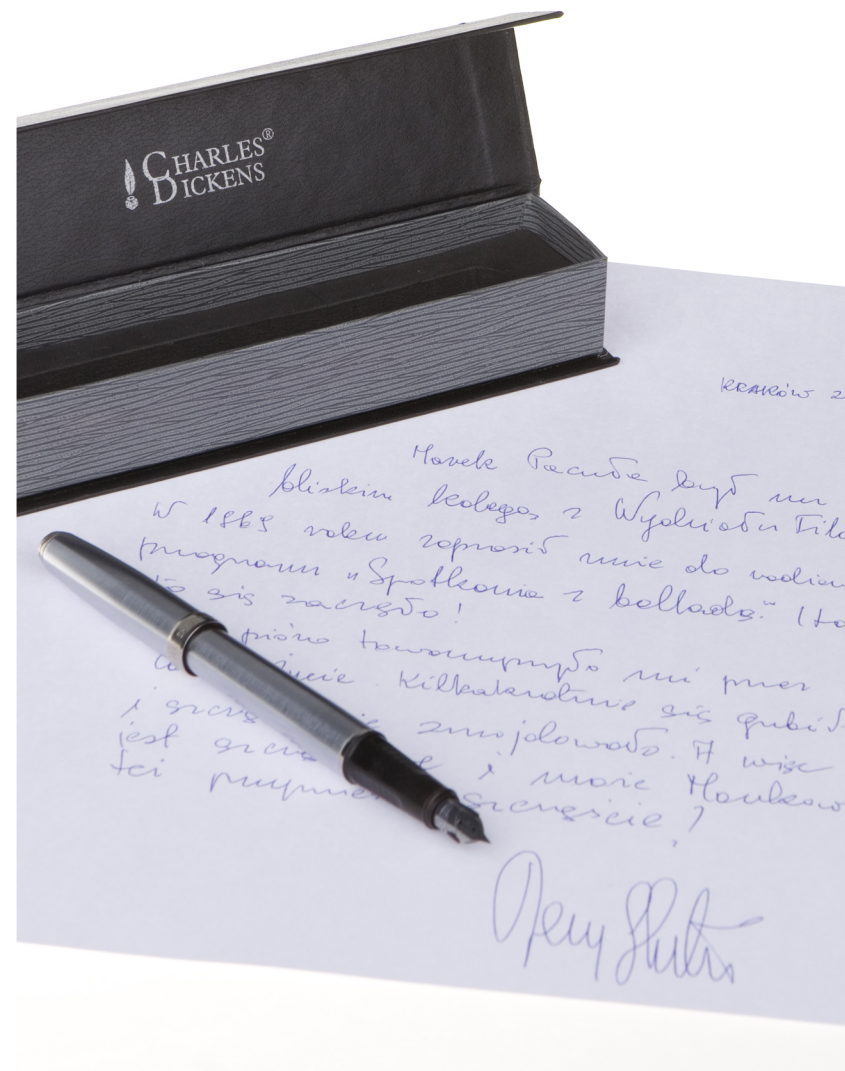 CHARLES®
DICKENS
KRAKÓW 2
Marek Pacuła był mi
bliskim kolegą z Wydziału Filo
W 1969 roku zaprosił mnie do radiow
programu „Spotkania z balladą." I ta
to się zaczęło!
pióro towarzyszyło mi przez
życie. Kilkakrotnie się gubił
i szczę znajdowało. A więc
jest szczę i może Markow
też przynie szczęście!